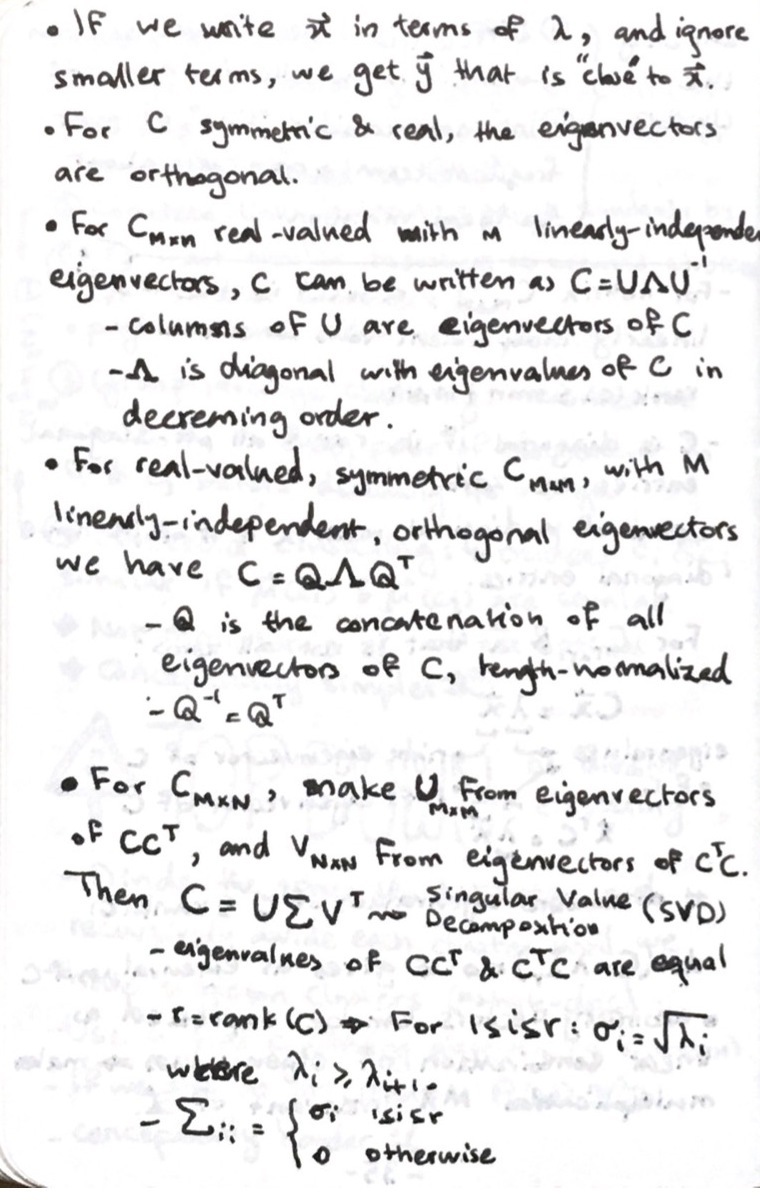 • IF we write x⃗ in terms of λ, and ignore
smaller terms, we get y⃗ that is "close" to x⃗.
• For C symmetric & real, the eigenvectors
are orthogonal.
• For C_{M×M} real-valued with M linearly-independe
eigenvectors, C can be written as C=UΛU⁻¹
- columns of U are eigenvectors of C
- Λ is diagonal with eigenvalues of C in
decreasing order.
• For real-valued, symmetric C_{M×M}, with M
linearly-independent, orthogonal eigenvectors
we have C = QΛQᵀ
- Q is the concatenation of all
eigenvectors of C, length-normalized
- Q⁻¹ = Qᵀ
• For C_{M×N}, make U_{M×M} From eigenvectors
of CCᵀ, and V_{N×N} From eigenvectors of CᵀC.
Then C = UΣVᵀ ⇝ Singular Value Decomposition (SVD)
- eigenvalues of CCᵀ & CᵀC are equal
- r = rank(C) ⇒ For 1≤i≤r : σᵢ = √λᵢ
where λᵢ ≥ λᵢ₊₁.
- Σᵢᵢ = { σᵢ 1≤i≤r
0 otherwise